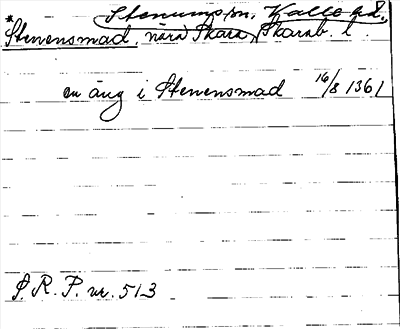 Stenums sn, Kålle hd.,
* Stenensmad, nära Skara, Skarab. l.
en äng i Stenensmad 16/8 1361
S. R. P. nr. 513